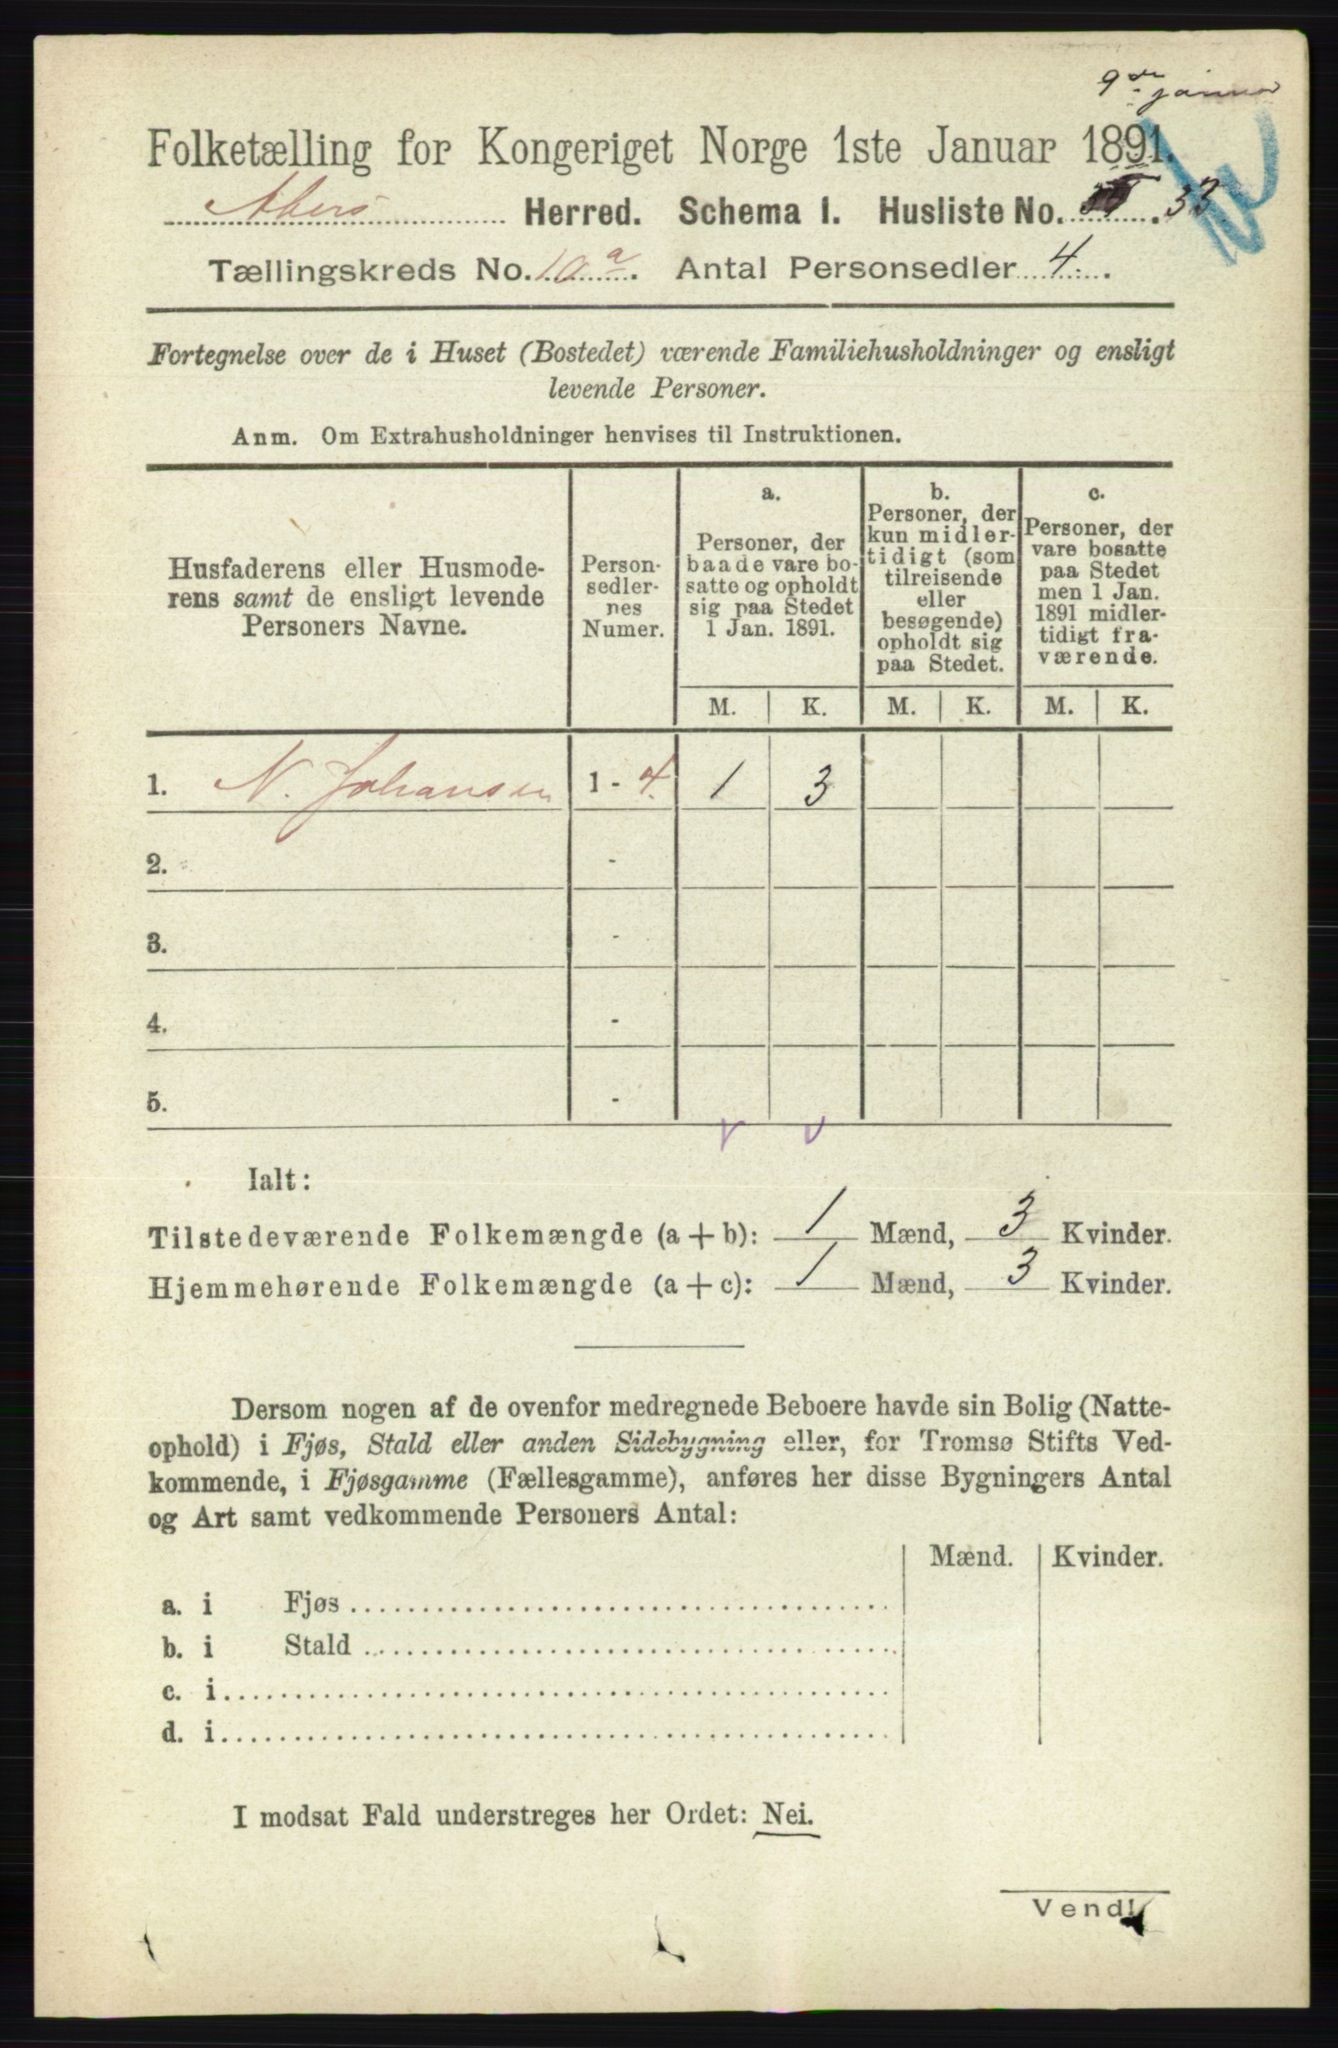 9de januar
Folketælling for Kongeriget Norge 1ste Januar 1891.
Akers Herred. Schema I. Husliste No. 33
Tællingskreds No. 10a. Antal Personsedler 4.
Fortegnelse over de i Huset (Bostedet) værende Familiehusholdninger og ensligt
levende Personer.
Anm. Om Extrahusholdninger henvises til Instruktionen.
Husfaderens eller Husmode-
rens samt de ensligt levende
Personers Navne.
Person-
sedler-
nes
Numer.
a.
Personer, der
baade vare bo-
satte og opholdt
sig paa Stedet
1 Jan. 1891.
b.
Personer, der
kun midler-
tidigt (som
tilreisende
eller
besøgende)
opholdt sig
paa Stedet.
c.
Personer, der
vare bosatte
paa Stedet
men 1 Jan.
1891 midler-
tidigt fra-
værende.
M. K. M. K. M. K.
1. N. Johansen 1 - 4. 1 3
2. -
3. -
4. -
5. -
Ialt:
Tilstedeværende Folkemængde (a + b): 1 Mænd, 3 Kvinder.
Hjemmehørende Folkemængde (a + c): 1 Mænd, 3 Kvinder.
Dersom nogen af de ovenfor medregnede Beboere havde sin Bolig (Natte-
ophold) i Fjøs, Stald eller anden Sidebygning eller, for Tromsø Stifts Ved-
kommende, i Fjøsgamme (Fællesgamme), anføres her disse Bygningers Antal
og Art samt vedkommende Personers Antal:
Mænd. Kvinder.
a. i Fjøs
b. i Stald
c. i
d. i
I modsat Fald understreges her Ordet: Nei.
Vend!